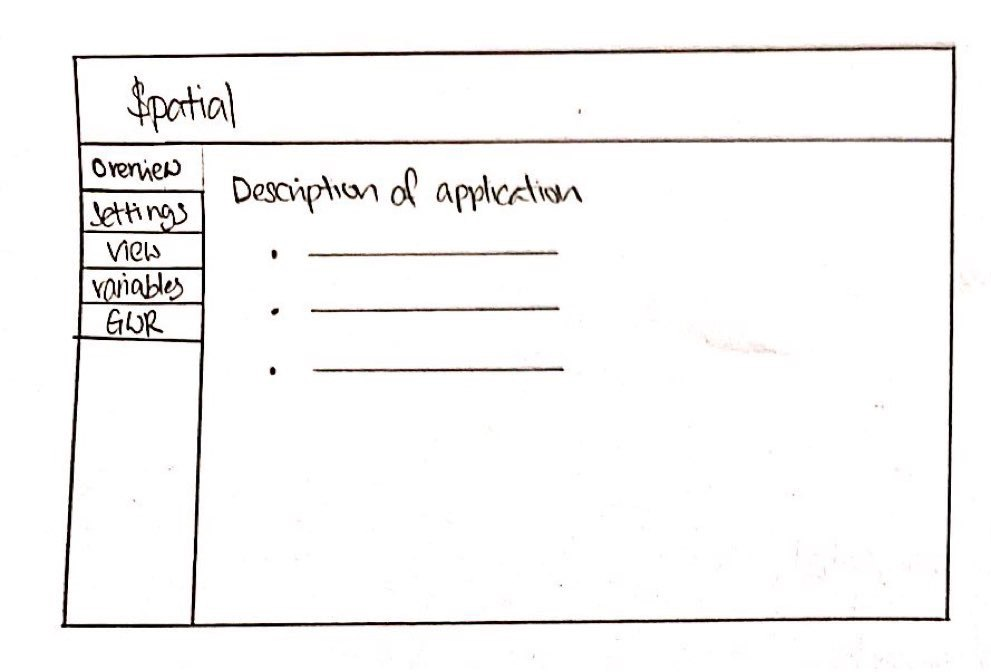 $patial
Overview
Settings
View
variables
GWR
Description of application